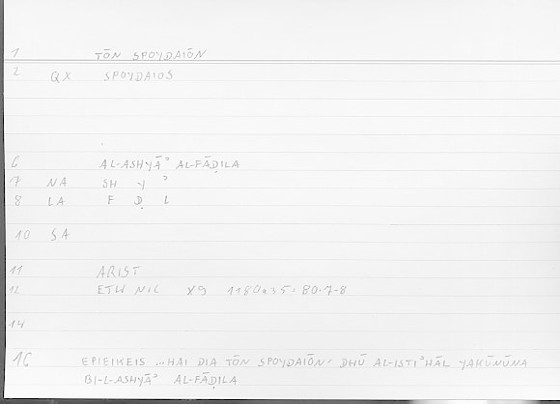 1 TŌN SPOYDAIŌN
2 QX SPOYDAIOS
6 AL-ASHYĀʾ AL-FĀḌILA
7 NA SH Y ʾ
8 LA F Ḍ L
10 SA
11 ARIST
12 ETH NIC X9 1180a35-80.7-8
14
16 EPIEIKEIS ...HAI DIA TŌN SPOYDAIŌN: DHŪ AL-ISTIʾHĀL YAKŪNŪNA
BI-L-ASHYĀʾ AL-FĀḌILA